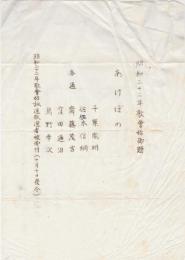 昭和二十二年歌會始御題
あけぼの
千葉胤明
佐佐木信綱
各通 齋藤茂吉
窪田通治
鳥野幸次
昭和二十二年歌會始詠進歌選者被仰付(十月十日発令)